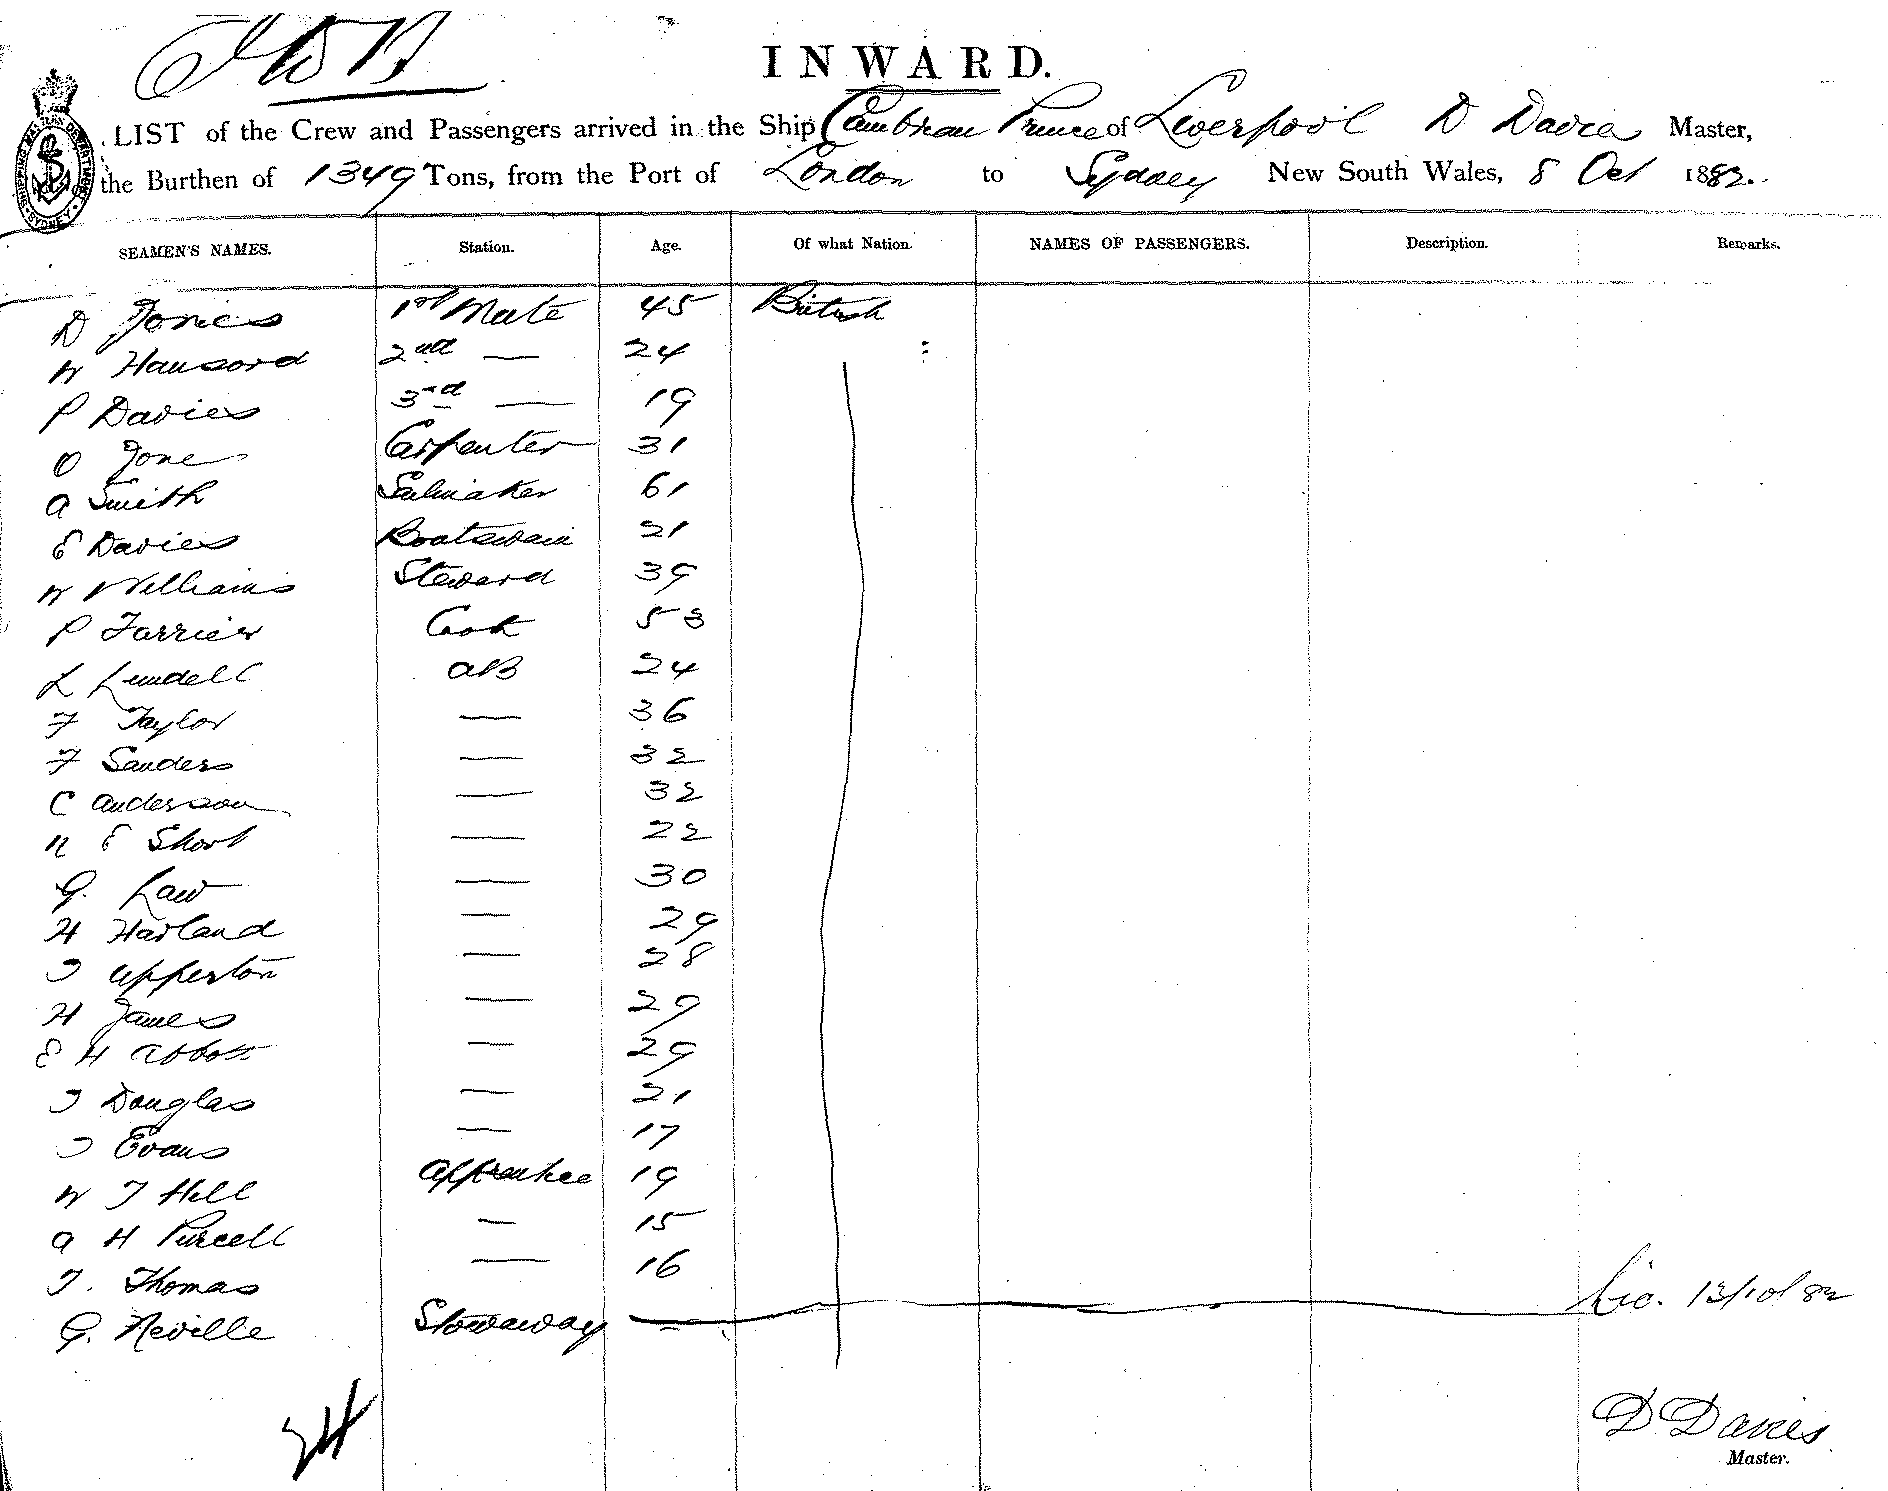 INWARD.
LIST of the Crew and Passengers arrived in the Ship Cambrian Prince of Liverpool D Davies Master,
the Burthen of 1349 Tons, from the Port of London to Sydney New South Wales, 8 Oct 1882.
SEAMEN'S NAMES. Station. Age. Of what Nation. NAMES OF PASSENGERS. Description. Remarks.
D Jones 1st Mate 45 British
W Hansord 2nd — 24
P Davies 3rd — 19
O Jone 31 Carpenter
A Smith Sailmaker 61
E Davies Boatswain 21
W Williams Steward 39
P Farrier Cook 53
L Lundell AB 24
F Taylor — 36
F Sanders — 32
C Anderson — 32
N E Short — 22
G. Law — 30
H Harland — 29
J Apperton — 28
H James — 29
E H Abbott — 29
J Douglas — 21
J Evans — 17
W J Hill Apprentice 19
A H Purcell — 15
T. Thomas — 16
G. Neville Stowaway — 13/10/82
24
D Davies
Master.